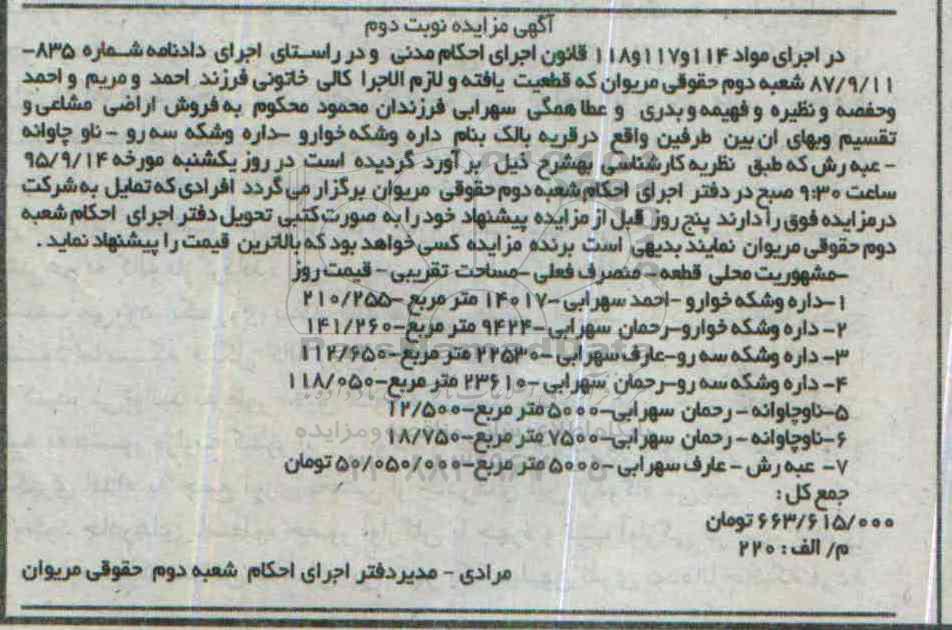 آگهی مزایده نوبت دوم
در اجرای مواد ۱۱۴و۱۱۷و۱۱۸ قانون اجرای احکام مدنی و در راستای اجرای دادنامه شماره ۸۳۵-
۸۷/۹/۱۱ شعبه دوم حقوقی مریوان که قطعیت یافته و لازم الاجرا کالی خاتونی فرزند احمد و مریم و احمد
وحفصه و نظیره و فهیمه و بدری و عطا همگی سهرابی فرزندان محمود محکوم به فروش اراضی مشاعی و
تقسیم وبهای ان بین طرفین واقع درقریه بالک بنام داره وشکه خوارو –داره وشکه سه رو - ناو چاوانه
- عبه رش که طبق نظریه کارشناسی بهشرح ذیل بر آورد گردیده است در روز یکشنبه مورخه ۹۵/۹/۱۴
ساعت ۹:۳۰ صبح در دفتر اجرای احکام شعبه دوم حقوقی مریوان برگزار می گردد افرادی که تمایل به شرکت
درمزایده فوق را دارند پنج روز قبل از مزایده پیشنهاد خود را به صورت کتبی تحویل دفتر اجرای احکام شعبه
دوم حقوقی مریوان نمایند بدیهی است برنده مزایده کسی خواهد بود که بالاترین قیمت را پیشنهاد نماید .
–مشهوریت محلی قطعه - متصرف فعلی –مساحت تقریبی - قیمت روز
۱–داره وشکه خوارو –احمد سهرابی –۱۴۰۱۷ متر مربع –۲۱۰/۲۵۵
۲- داره وشکه خوارو–رحمان سهرابی–۹۴۲۴ متر مربع–۱۴۱/۲۶۰
۳- داره وشکه سه رو–عارف سهرابی –۲۲۵۳۰ متر مربع–۱۱۲/۶۵۰
۴- داره وشکه سه رو–رحمان سهرابی –۲۳۶۱۰ متر مربع–۱۱۸/۰۵۰
۵–ناوچاوانه - رحمان سهرابی–۵۰۰۰ متر مربع–۱۲/۵۰۰
۶–ناوچاوانه - رحمان سهرابی–۷۵۰۰ متر مربع–۱۸/۷۵۰
۷- عبه رش - عارف سهرابی –۵۰۰۰ متر مربع–۵۰/۰۵۰/۰۰۰ تومان
جمع کل :
۶۶۳/۶۱۵/۰۰۰ تومان
م/ الف : ۲۲۰
مرادی - مدیردفتر اجرای احکام شعبه دوم حقوقی مریوان